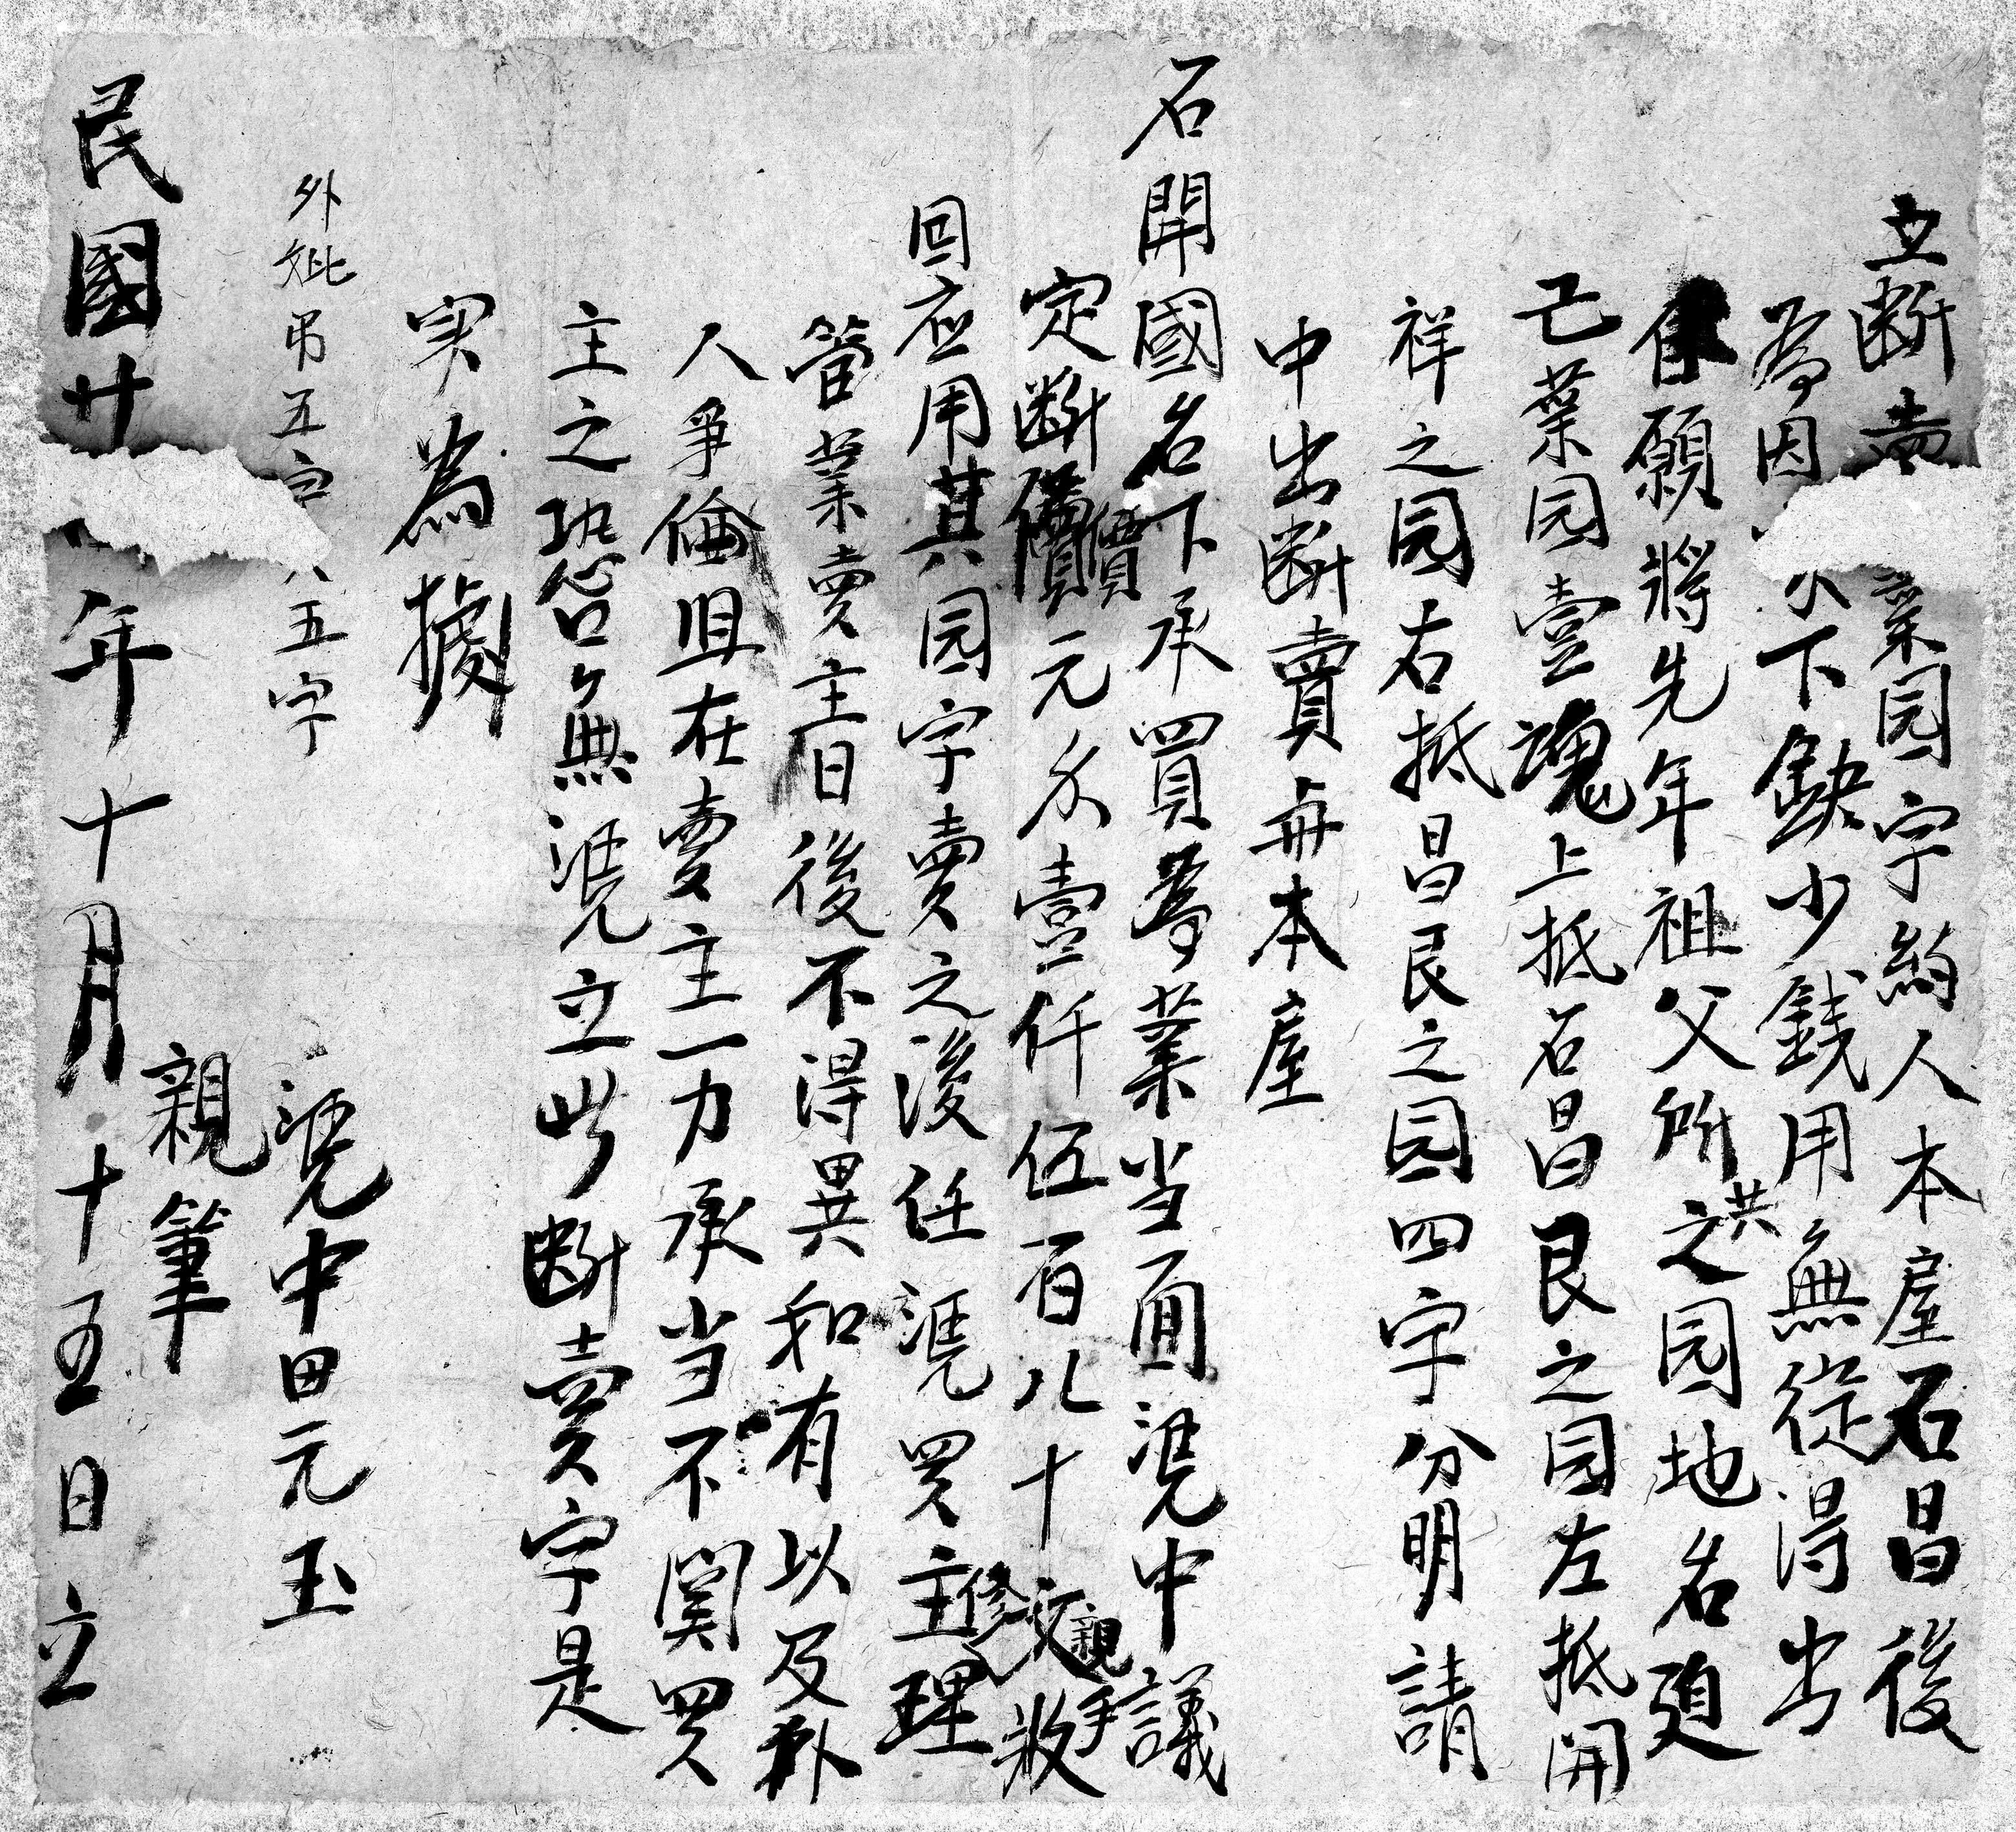 立断賣業园字約人本屋石昌後
為因下缺少錢用無從得出
自願將先年祖父所共之园地名廹
亡業园壹塊上抵石昌艮之园左抵開
祥之园右抵昌艮之园四字分明請
中出断賣与本屋
石開國名下承買為業当面凴中議
定断價價元分壹仟伍百八十文親手收
回应用其园字賣之後任凴買主修理
管業賣主日後不得異和有以及补
人爭倫俱在賣主一力承当不関買
主之恐口無凴立此断賣字是
实為據
外批吊五字五字
凴中田元玉
親筆
民國廿年十月十五日立